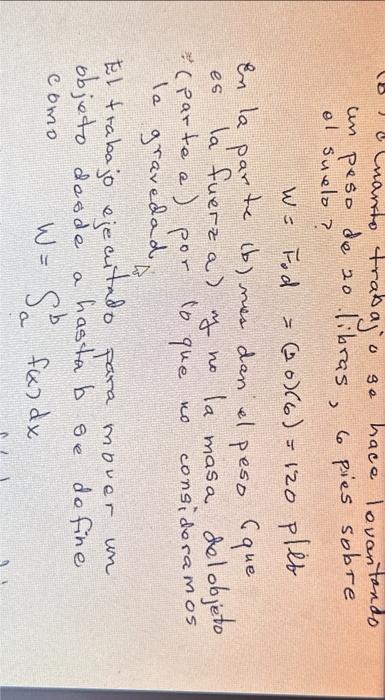 (b) ¿Cuanto trabajo se hace lovantando
un peso de 20 libras, 6 pies sobre
el suelo?
W = F.d = (20)(6) = 120 plb
En la parte (b) nos dan el peso (que
es la fuerza) y no la masa del objeto
(parte a) por lo que no consideramos
la gravedad.
El trabajo ejecutado para mover un
objeto desde a hasta b se define
como
W = ∫ₐᵇ f(x) dx